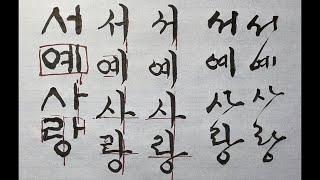 서예사랑
서예사랑
서예사랑
서예사랑
서예사랑